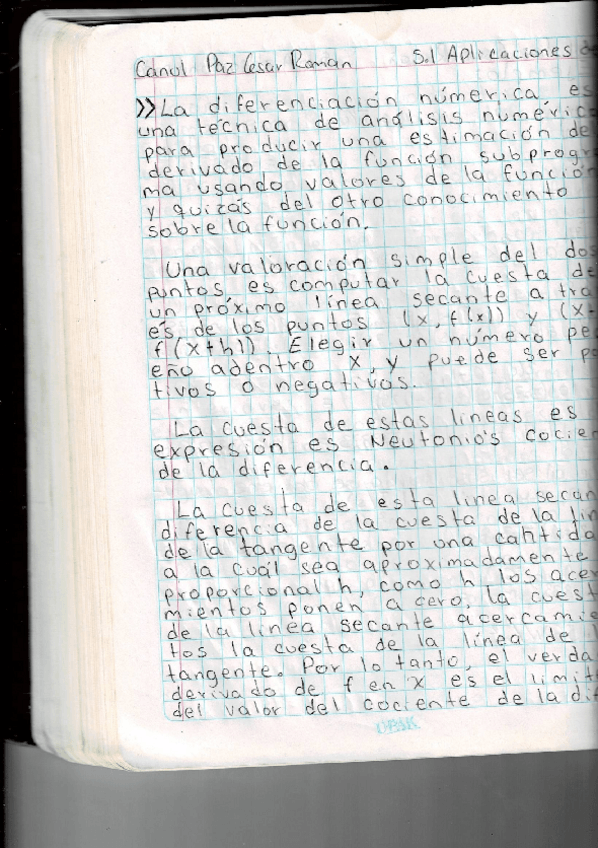 Canul Paz Cesar Roman 5.1 Aplicaciones de
>> La diferenciación númerica, es
una técnica de análisis numéric
para producir una estimación de
derivado de la función subprogr
ma usando valores de la función
y quizás del otro conocimiento
sobre la función.
Una valoración simple del dos
puntos es computar la cuesta de
un próximo línea secante a tra
és de los puntos (x, f(x)) y (x+
f(x+h)). Elegir un número peq
eño adentro x, y puede ser po
tivos o negativos.
La cuesta de estas lineas es
expresión es Neutonio's cocien
de la diferencia.
La cuesta de esta línea secan
diferencia de la cuesta de la lín
de la tangente por una cantida
a la cuál sea aproximadamente
proporcional h, como h los acer
mientos ponen a cero, la cuest
de la línea secante acercamie
tos la cuesta de la línea de l
tangente. Por lo tanto, el verda
derivado de f en x es el limit
del valor del cociente de la dif